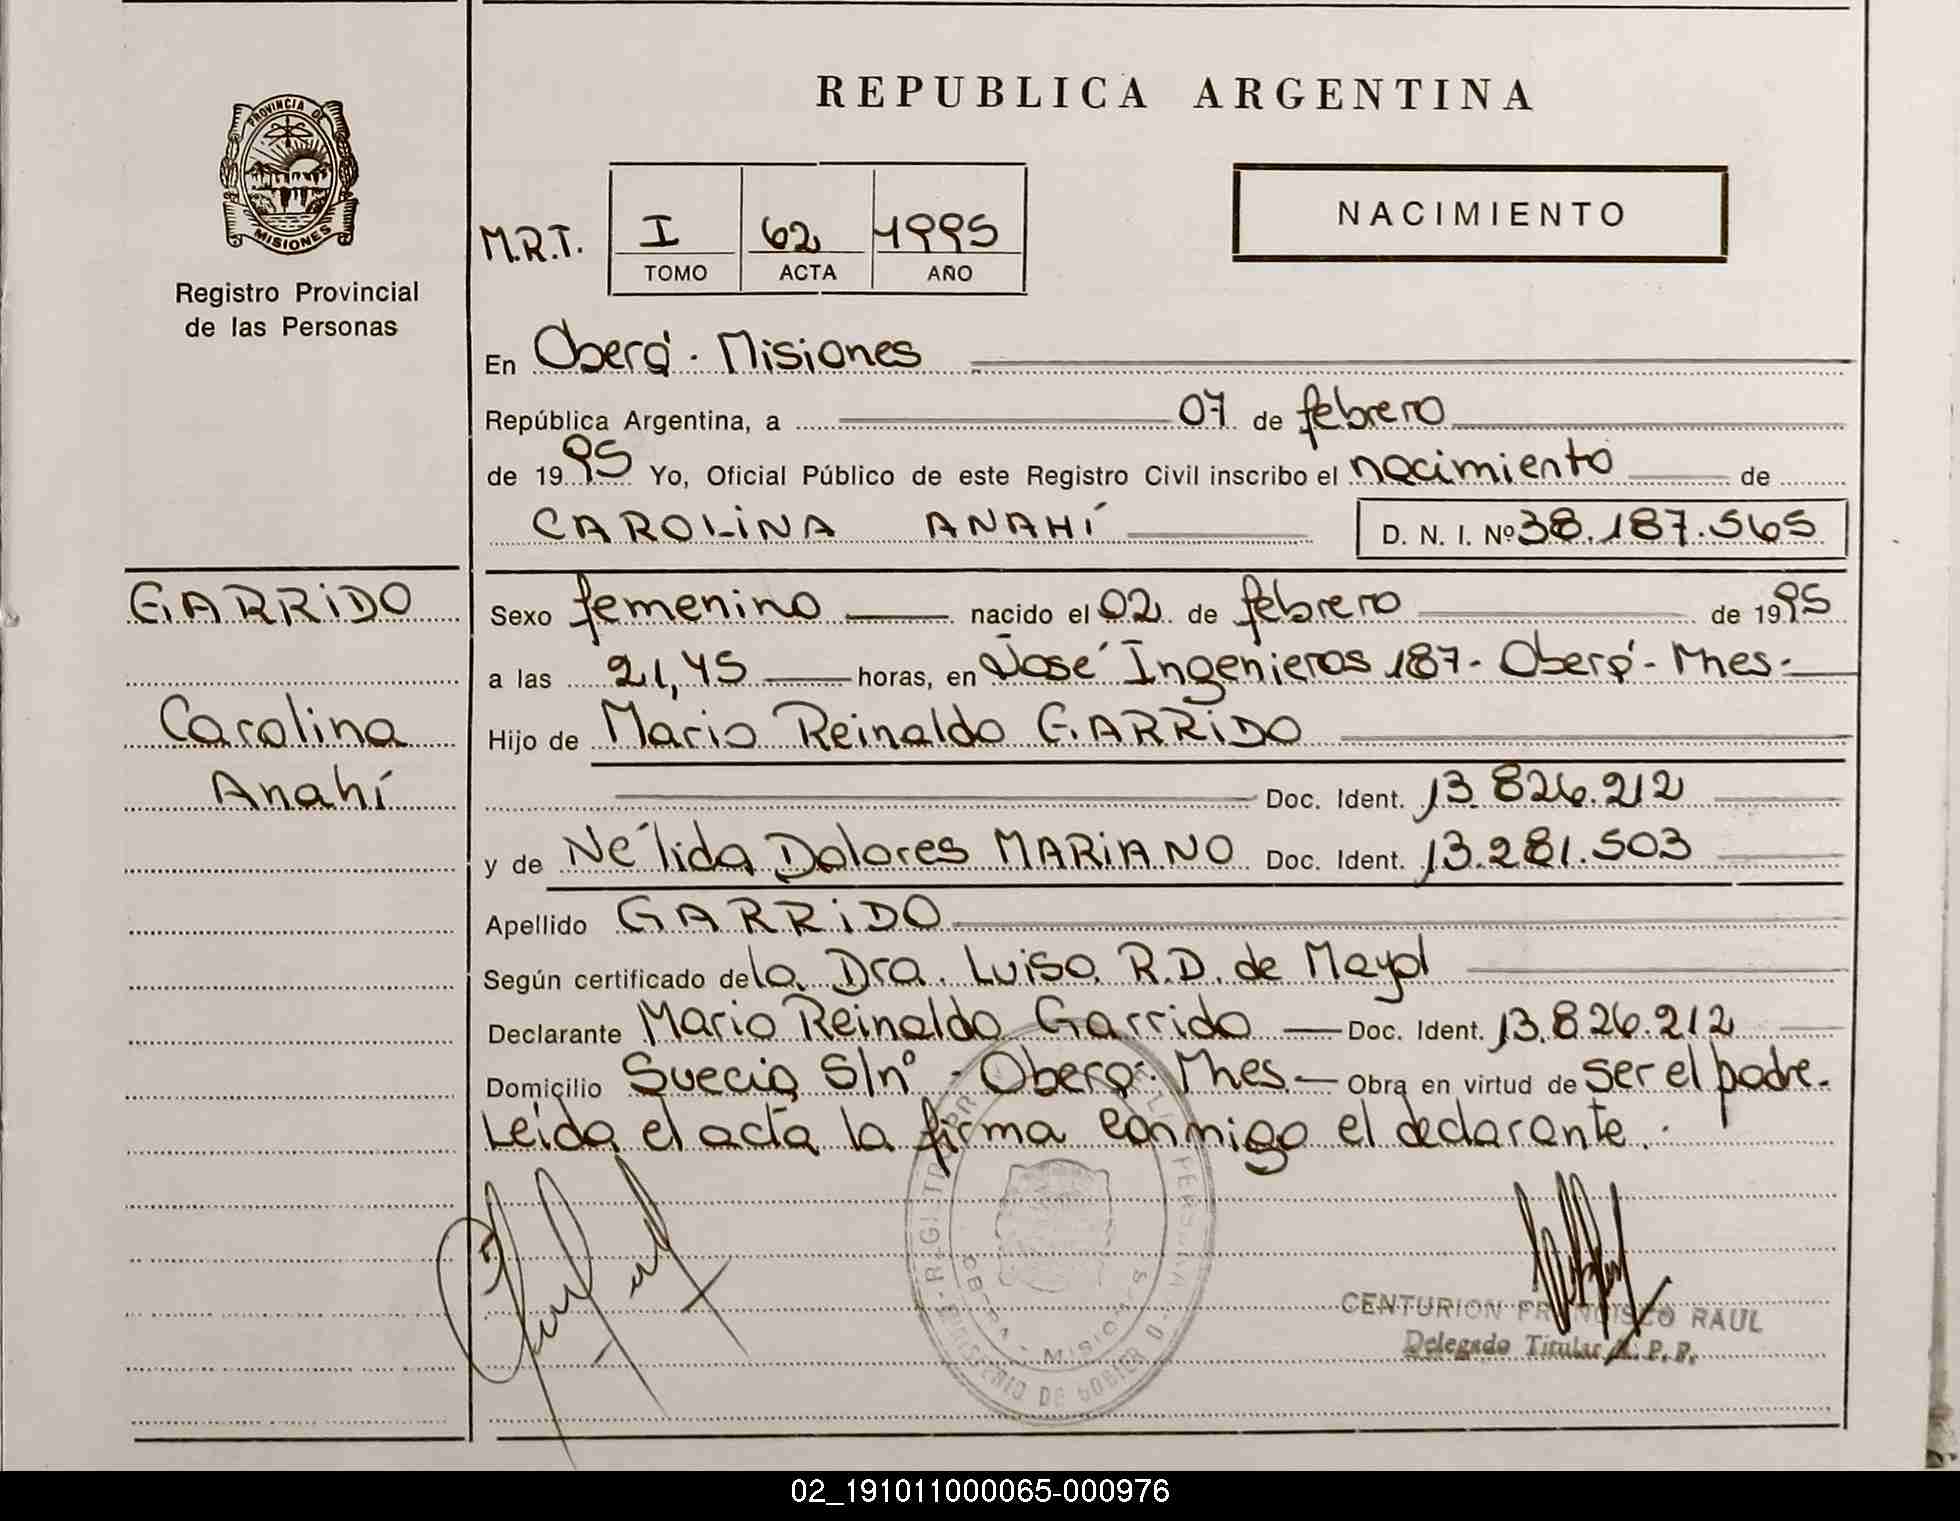 PROVINCIA DE
MISIONES
Registro Provincial
de las Personas
REPUBLICA ARGENTINA
M.R.T.
I 62 1995
TOMO ACTA AÑO
NACIMIENTO
En Oberá - Misiones
República Argentina, a 07 de febrero
de 1995 Yo, Oficial Público de este Registro Civil inscribo el nacimiento de
CAROLINA ANAHÍ D. N. I. Nº 38.187.565
GARRIDO
Carolina
Anahí
Sexo femenino nacido el 02 de febrero de 1995
a las 21,45 horas, en José Ingenieros 187- Oberá - Mnes-
Hijo de Mario Reinaldo GARRIDO
Doc. Ident. 13.826.212
y de Nélida Dolores MARIANO Doc. Ident. 13.281.503
Apellido GARRIDO
Según certificado de la Dra. Luisa R.D. de Mayol
Declarante Mario Reinaldo Garrido Doc. Ident. 13.826.212
Domicilio Suecia S/nº - Oberá - Mnes. Obra en virtud de ser el padre.
Leída el acta la firma conmigo el declarante.
OBERA - MISIONES
MINISTERIO DE GOBIERNO
CENTURION FRANCISCO RAUL
Delegado Titular R. P. P.
02_191011000065-000976